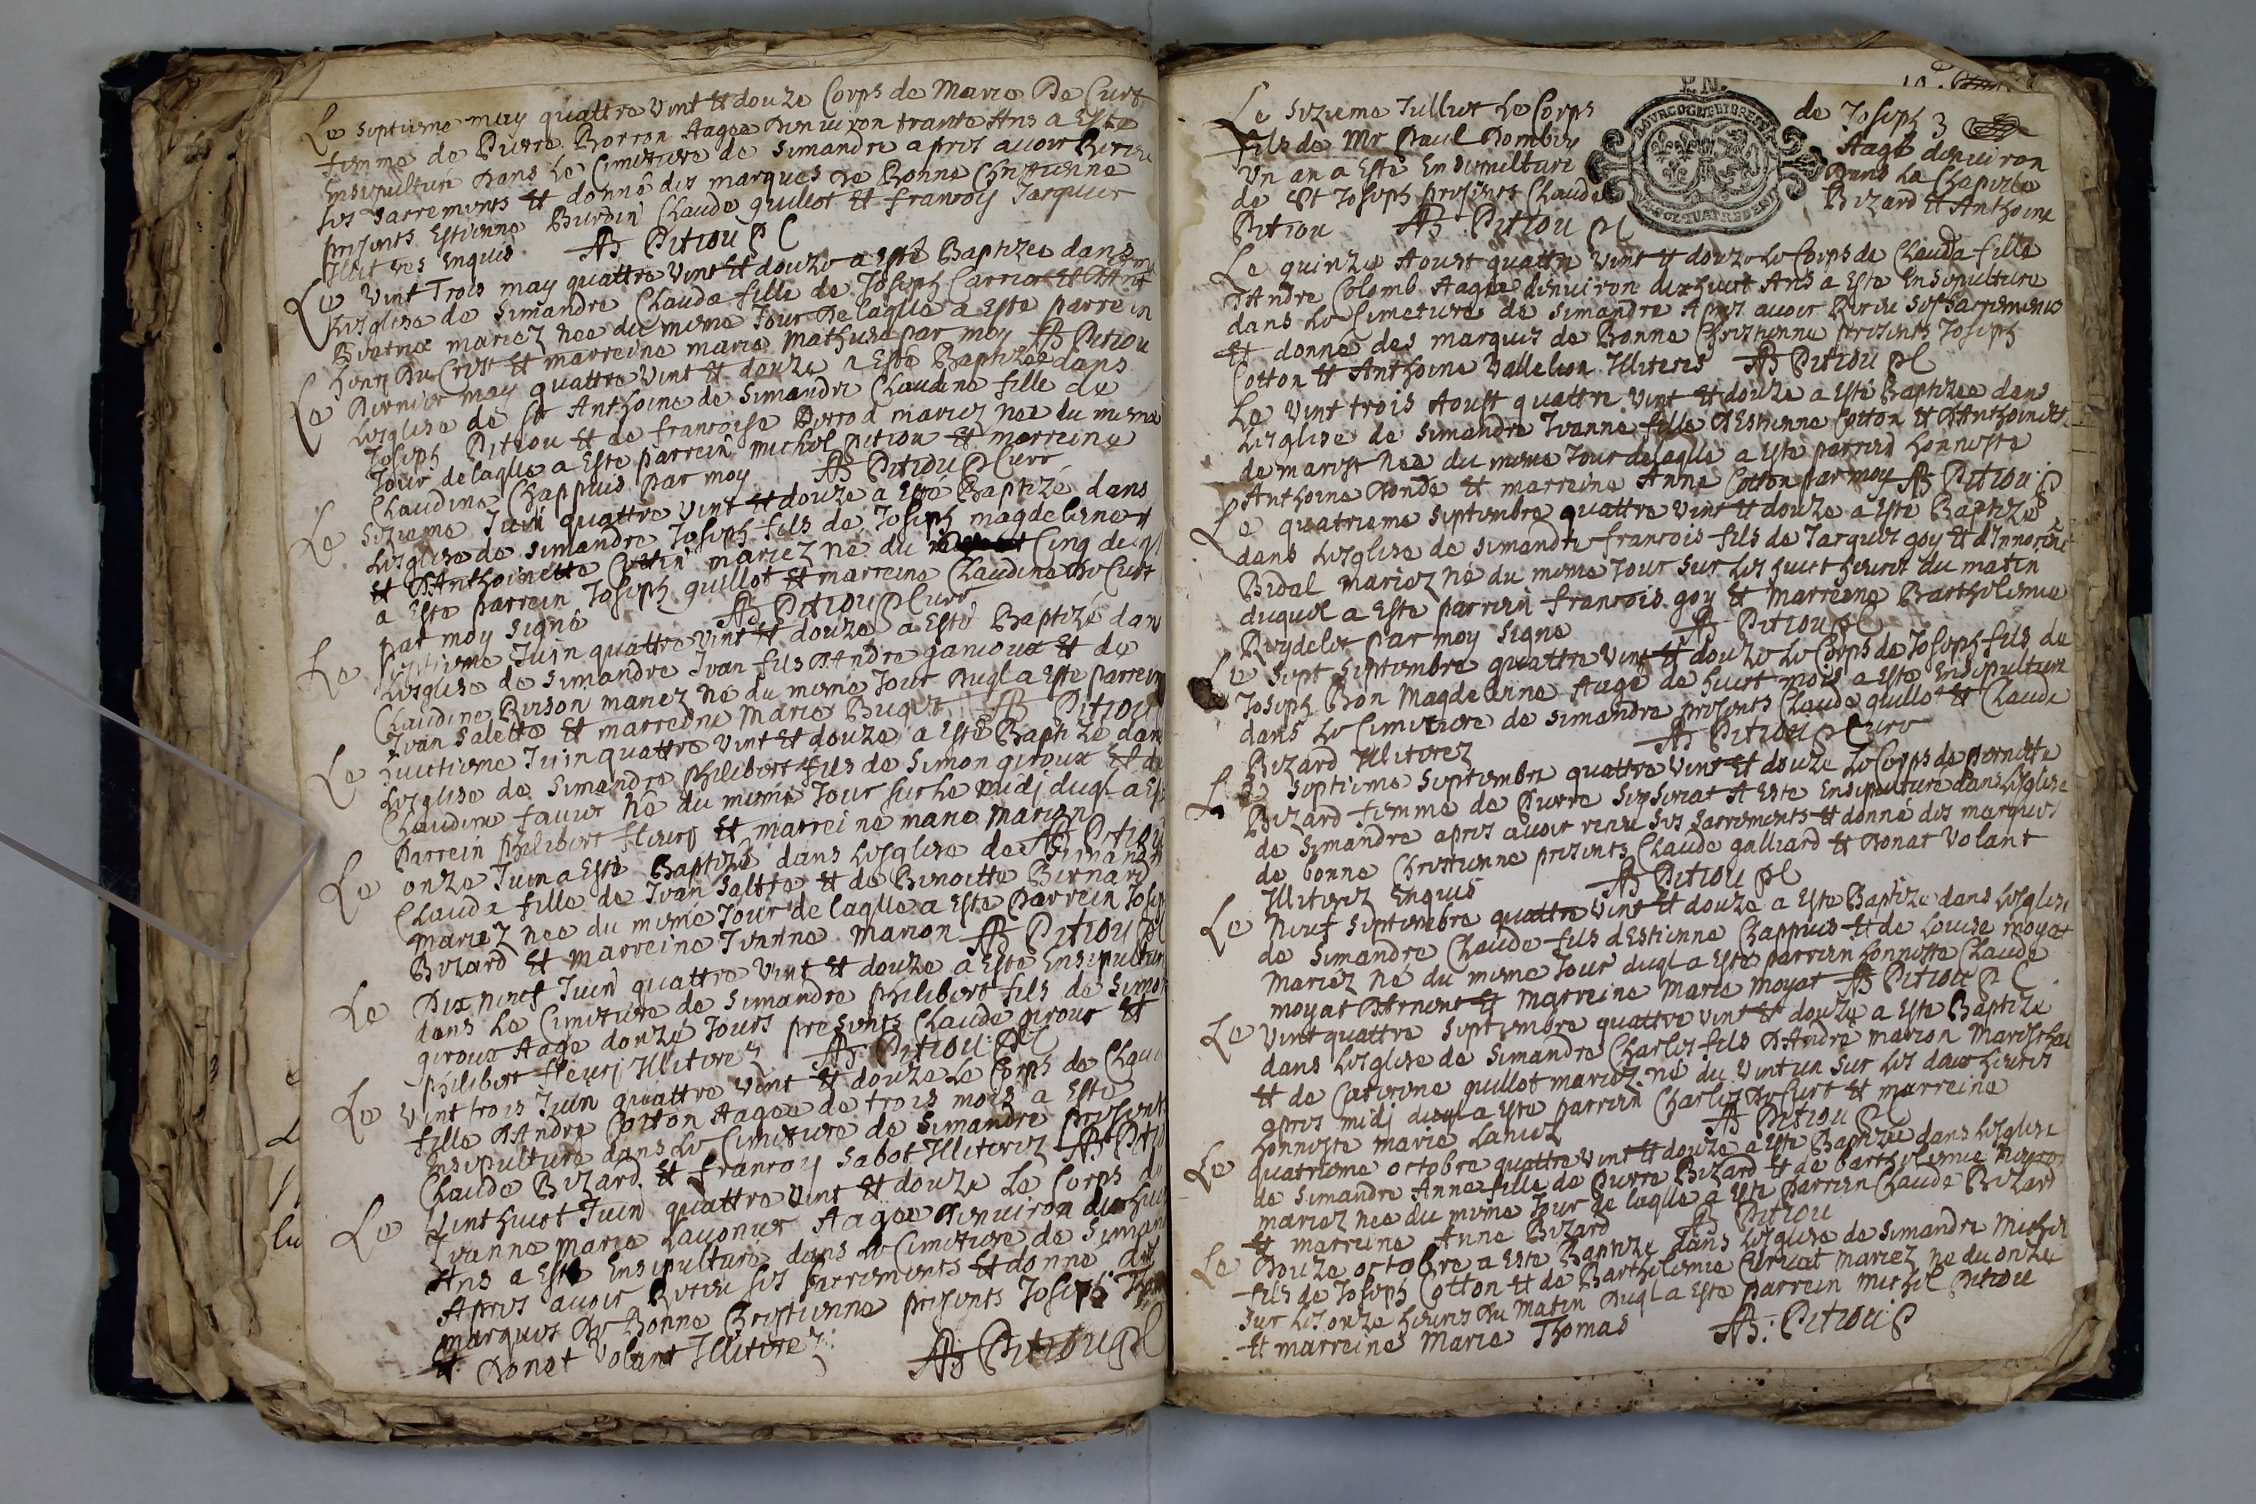 Le septiesme may quattre vint et douze Corps de Marie De Curt
femme de Pierre Borron Aagée denuiron trante Ans a Este
Ensepulturé dans Le Cimetiere de Simandre apres auoir Receu
ses sacrements et donné des marques de Bonne Chrestienne
presents Estienne Burdin Claude guillot et francois Jacquier
Illiteres Enquis AB Pitiou PC
Le vint Trois may quattre vint et douze a Esté Baptizée dans
Lesglise de Simandre Clauda fille de Joseph Carriat et
mariez née du mesme Jour De laqlle a Este parrein
Henry Du Crest et marreine marie Mathieu par moy AB Pitiou
Le Dernier may quattre vint et douze a Esté Baptizée dans
Lesglise de St Anthoine de Simandre Claudine fille de
Joseph Pitiou et de francoise Perrod mariez née du mesme
Jour delaqlle a Este parrein michel Pitiou et marreine
Claudine Chappuis par moy AB Pitiou P Curé
Le sizieme Juin quattre vint et douze a Esté Baptizé dans
Lesglise de Simandre Joseph fils de Joseph magdeleine
et d'Anthoinette Cottin mariez né du Cinq duql
a Este parrein Joseph guillot et marreine Claudine De Curt
par moy signé AB Pitiou P Curé
Le septiesme Juin quattre vint et douze a Esté Baptizé dans
Lesglise de Simandre Jvan fils dAndre ganioux et de
Claudine Brison mariez né du mesme Jour Duql a Este parrein
Jvan Salette et marreine Marie Buget AB Pitiou
Le huictiesme Juin quattre vint et douze a Esté Baptizé dans
Lesglise de Simandre philibert fils de Simon giroux et de
Claudine fauier né du mesme Jour sur le midj duql a Este
Parrein philibert fleury et marreine marie Marion AB Pitiou
Le onze Juin a Este Baptizé dans Lesglise de Simandre
Clauda fille de Jvan Salette et de Benoitte Bernard
mariez née du mesme Jour de laqlle a Este Parrein Joseph
Bizard et marreine Jvanne Marion AB Pitiou PC
Le Dix neuf Juin quattre vint et douze a Esté Ensepulturé
dans Le Cimetiere de Simandre philibert fils de Simon
giroux Aagé douze Jours presents Claude giroux et
philibert fleurj Illiterez AB Pitiou PC
Le vint trois Juin quattre vint et douze Le Corps de Clauda
fille dAndre Cotton Aagée de trois mois a Este
Ensepulturé dans Le Cimetiere de Simandre presents
Claude Bizard et francoy Sabot Illiterez AB Pitiou
Le vint huict Juin quattre vint et douze Le Corps de
Jvanne marie Lauonier Aagée Denuiron dix huict
Ans a Esté Ensepulturé dans Le Cimetiere de Simandre
Apres auoir Receu ses sacrements et donné des
marques de Bonne Chrestienne presents Joseph
et Donat Volant Illiterez AB Pitiou PC
Le sizieme Julliet Le Corps de Joseph 3
fils de Mr Paul Aagé denuiron
Vn an a Esté Ensepulturé Dans La Chapelle
de St Joseph presents Claude Bizard et Anthoine
Pitiou AB Pitiou PC
Le quinze Aoust quattre vint et douze Le Corps de Clauda fille
dAndre Colomb Aagée denuiron dix huict Ans a Este Ensepulture
dans Le Cimetiere de Simandre Apres auoir Receu ses sacrements
et donné des marques de Bonne Chrestienne presents Joseph
Cotton et Anthoine Vallelion Illiteres AB Pitiou PC
Le vint trois Aoust quattre vint et douze a Esté Baptizée dans
Lesglise de Simandre Jvanne fille dEstienne Cotton et dAnthoinette
de marest née du mesme Jour delaqlle a este parrein honneste
Anthoine Ronde et marreine Anne Cotton par moy AB Pitiou P
Le quatriesme septembre quattre vint et douze a Este Baptizé
dans Lesglise de Simandre francois fils de Jacques goy et dInnocente
Bidal mariez né du mesme Jour sur les huict heures du matin
duquel a Este parrein francois goy et marreine Bartholemie
Reydelet par moy signe AB Pitiou PC
Le sept septembre quattre vint et douze Le Corps de Joseph fils de
Joseph Bon Magdelanne Aagé de huict mois a Este Ensepulturé
dans Le Cimetiere de Simandre presents Claude guillot et Claude
Bizard Illiterez AB Pitiou P Curé
Le septieme septembre quattre vint et douze Le Corps de pernette
Bizard femme de Pierre a Este Ensepulturé dans Lesglise
de Simandre apres auoir receu ses sacrements et donné des marques
de bonne Chrestienne presents Claude galliard et Donat Volant
Illiterez Enquis AB Pitiou PC
Le Neuf septembre quattre vint et douze a Este Baptize dans Lesglise
de Simandre Claude fils dEstienne Chappuis et de Louise moyat
mariez né du mesme Jour duql a Este parrein honneste Claude
moyat et Marreine Marie Moyat AB Pitiou PC
Le vint quattre septembre quattre vint et douze a Este Baptizé
dans Lesglise de Simandre Charles fils dAndré marion Mareschal
et de Caterine guillot mariez né du vint un sur les deux heures
apres midj duql a Este parrein Charles De Curt et marreine
honneste marie Laniel AB Pitiou PC
Le quatriesme octobre quattre vint et douze a Este Baptizée dans Lesglise
de Simandre Anne fille de Pierre Bizard et de bartholemie
mariez née du mesme Jour de laqlle a Este Parrein Claude Bizard
et marreine Anne Bizard AB Pitiou
Le Douze octobre a Este Baptizé dans Lesglise de Simandre Michel
fils de Joseph Cotton et de Bartholemie Curuat mariez né du onze
sur les onze heures du matin duql a Este parrein michel Pitiou
et marreine Marie Thomas AB Pitiou P